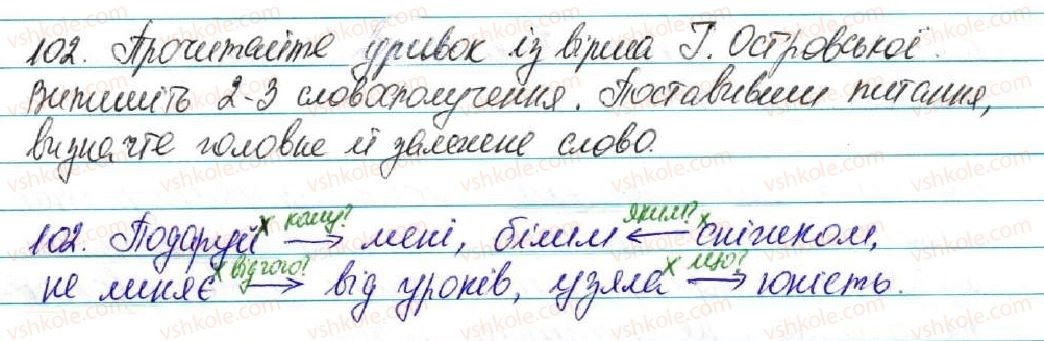 102. Прочитайте уривок із вірша Г. Островської.
Випишіть 2-3 словосполучення. Поставивши питання,
визначте головне й залежне слово.
102. Подаруй х кому? → мені, білим ← яким? х сніжком,
не линяє х від чого? → від уроків, узяла х що? → юність.